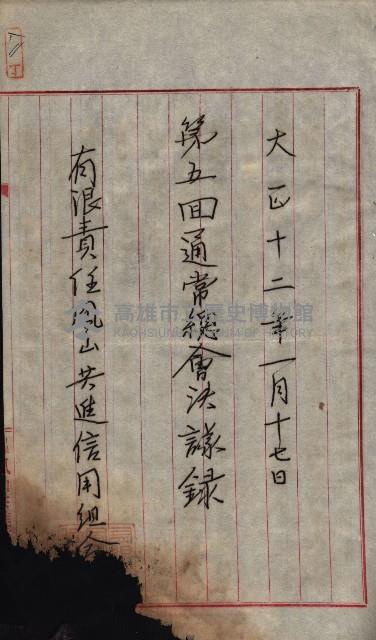 大正十二年一月十七日
第五回通常總會決議録
有限責任鳳山共進信用組合
高雄市立歷史博物館
KAOHSIUNG MUSEUM OF HISTORY